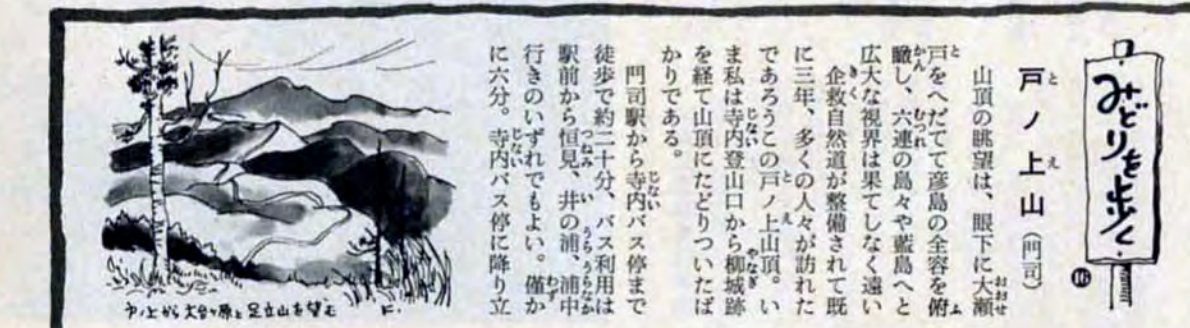 みどりを歩く
⑯
戸ノ上山（門司）
山頂の眺望は、眼下に大瀬
戸をへだてて彦島の全容を俯
瞰し、六連の島々や藍島へと
広大な視界は果てしなく遠い
企救自然道が整備されて既
に三年、多くの人々が訪れた
であろうこの戸ノ上山頂。い
ま私は寺内登山口から柳城跡
を経て山頂にたどりついたば
かりである。
門司駅から寺内バス停まで
徒歩で約二十分、バス利用は
駅前から恒見、井の浦、浦中
行きのいずれでもよい。僅か
に六分。寺内バス停に降り立
戸ノ上から大台ヶ原と足立山を望む
K.